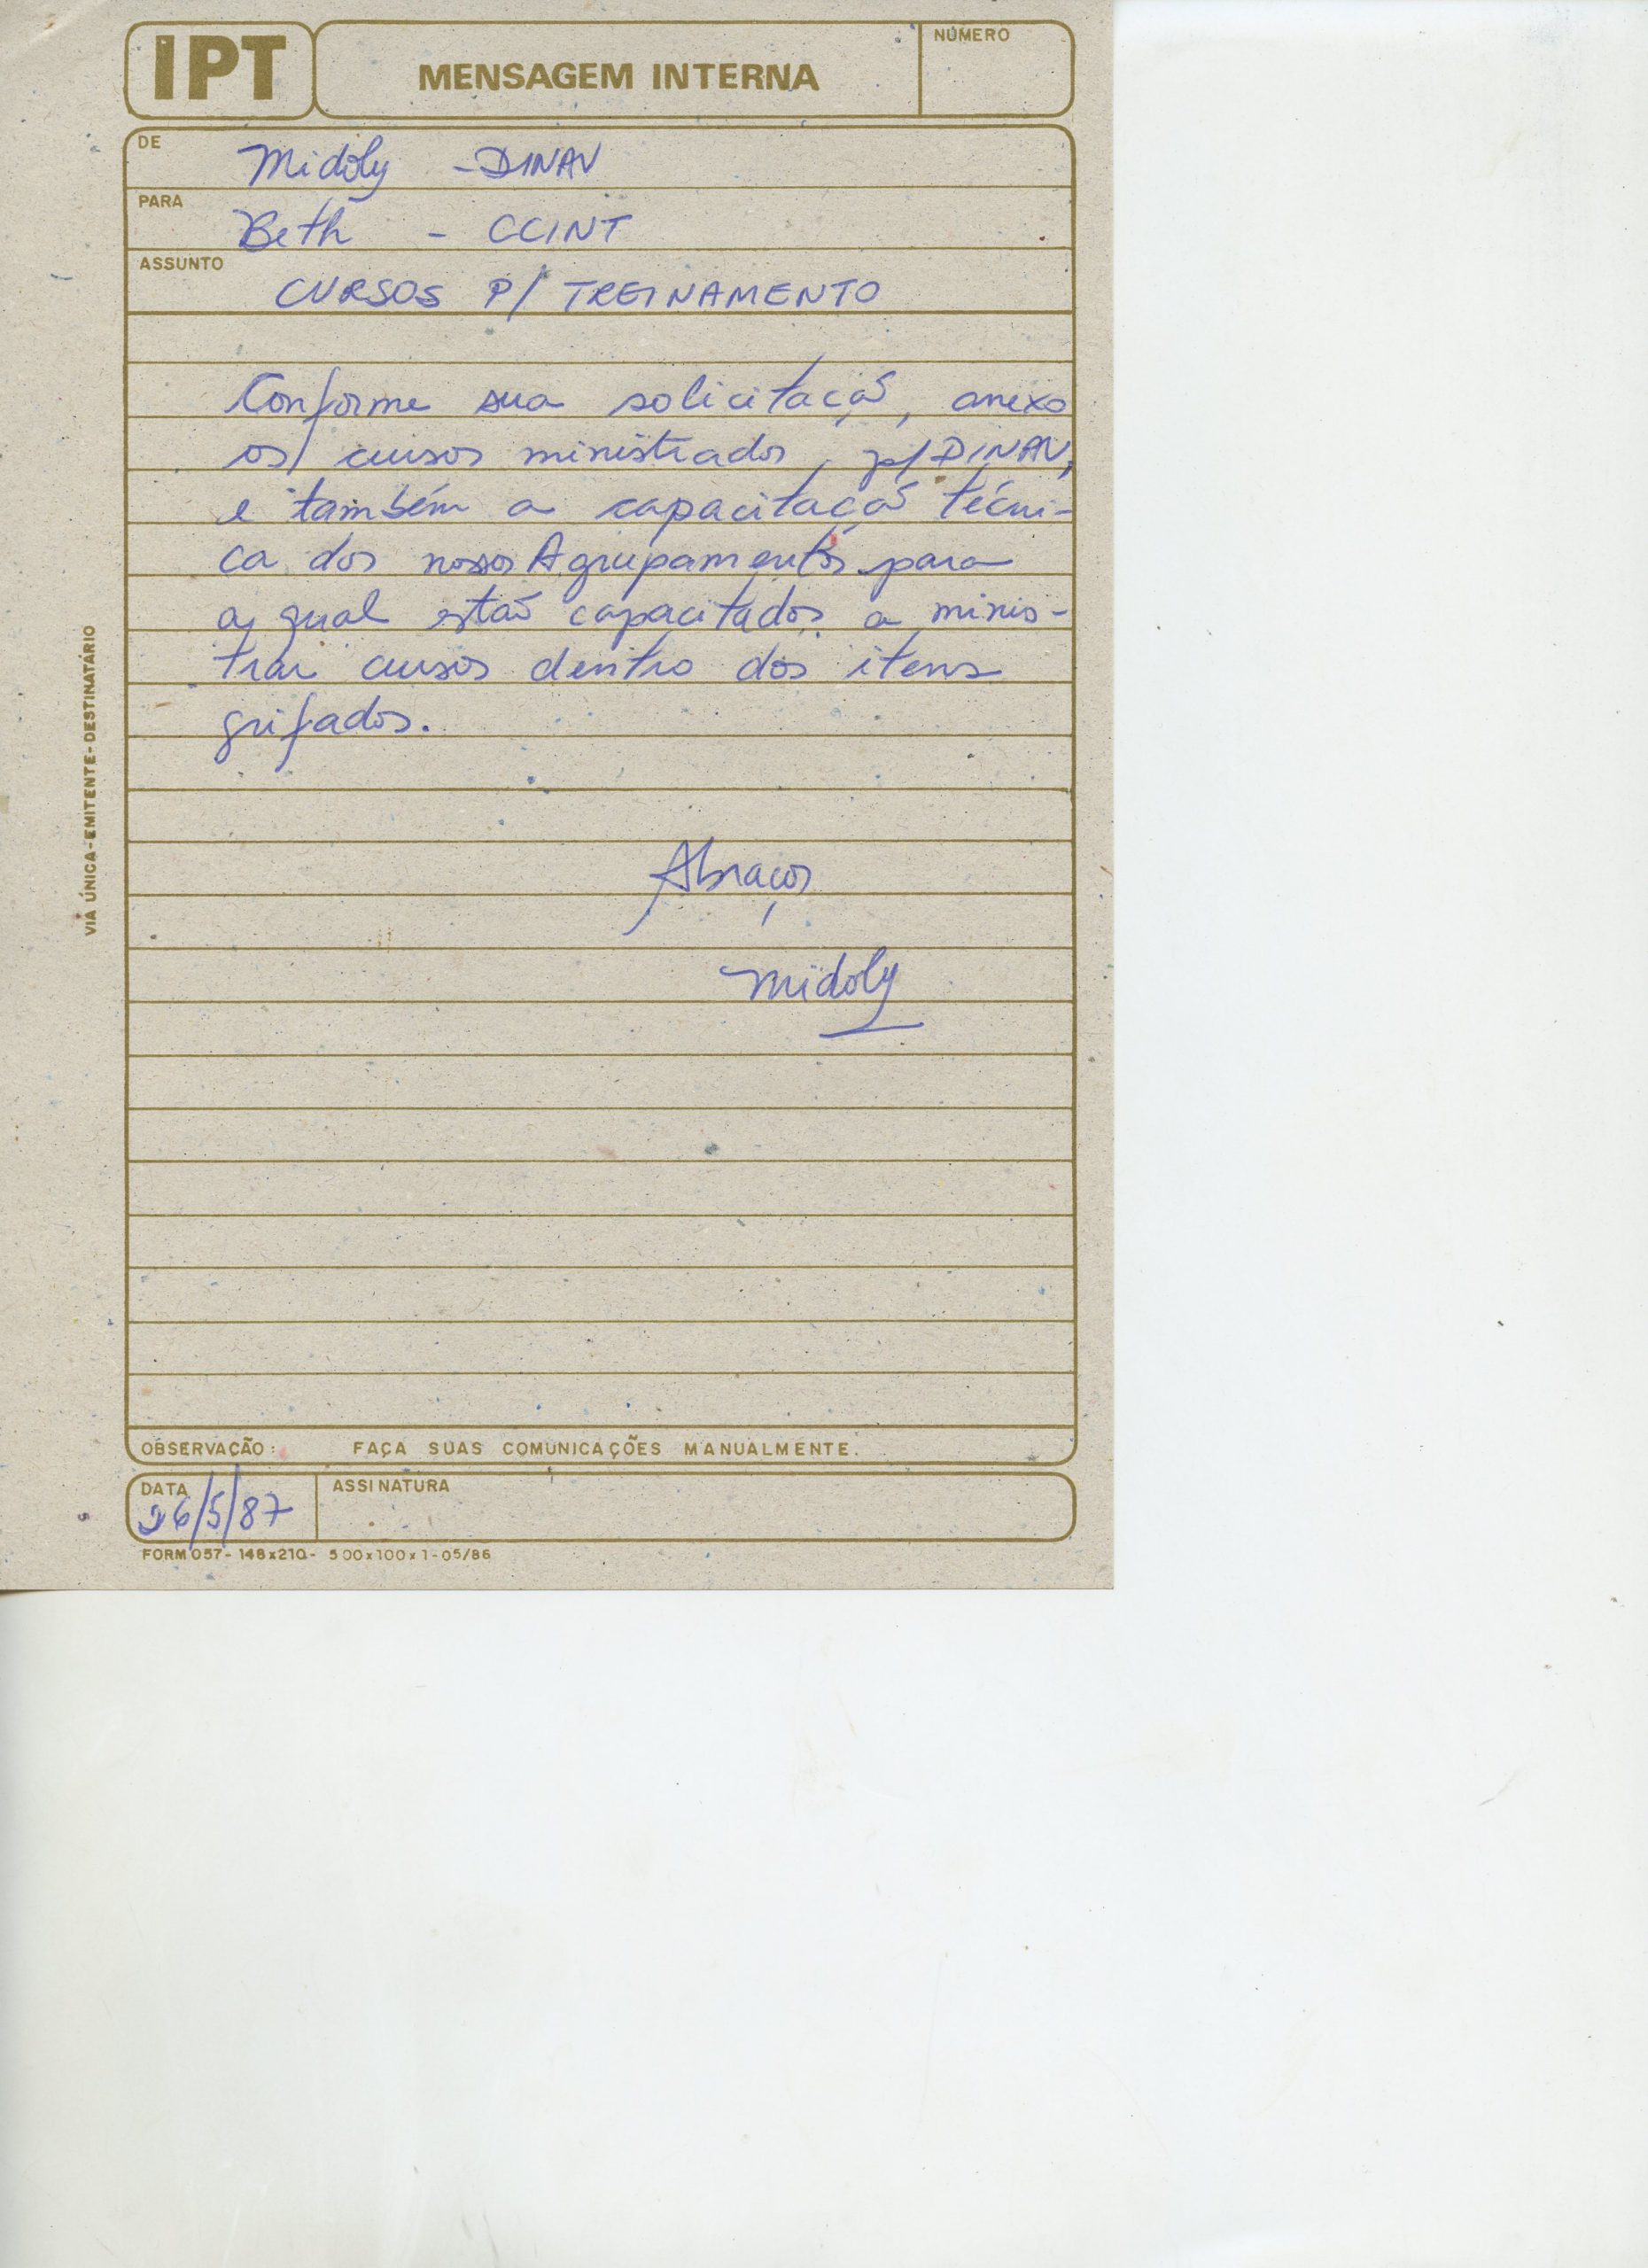 IPT
MENSAGEM INTERNA
NÚMERO
DE Midoly - DINAV
PARA Beth - CCINT
ASSUNTO CURSOS P/ TREINAMENTO
Conforme sua solicitação, anexo
os cursos ministrados, p/ DINAV,
e também a capacitação técni-
ca dos nossos Agrupamentos para
a qual estão capacitados a minis-
trar cursos dentro dos itens
grifados.
Abraços
Midoly
VIA ÚNICA-EMITENTE-DESTINATÁRIO
OBSERVAÇÃO: FAÇA SUAS COMUNICAÇÕES MANUALMENTE.
DATA 26/5/87
ASSINATURA
FORM 057- 148x210- 500x100x1-05/86